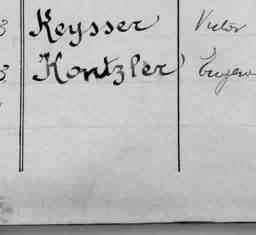 3 Keysser Victor
3 Kontzler Eugen